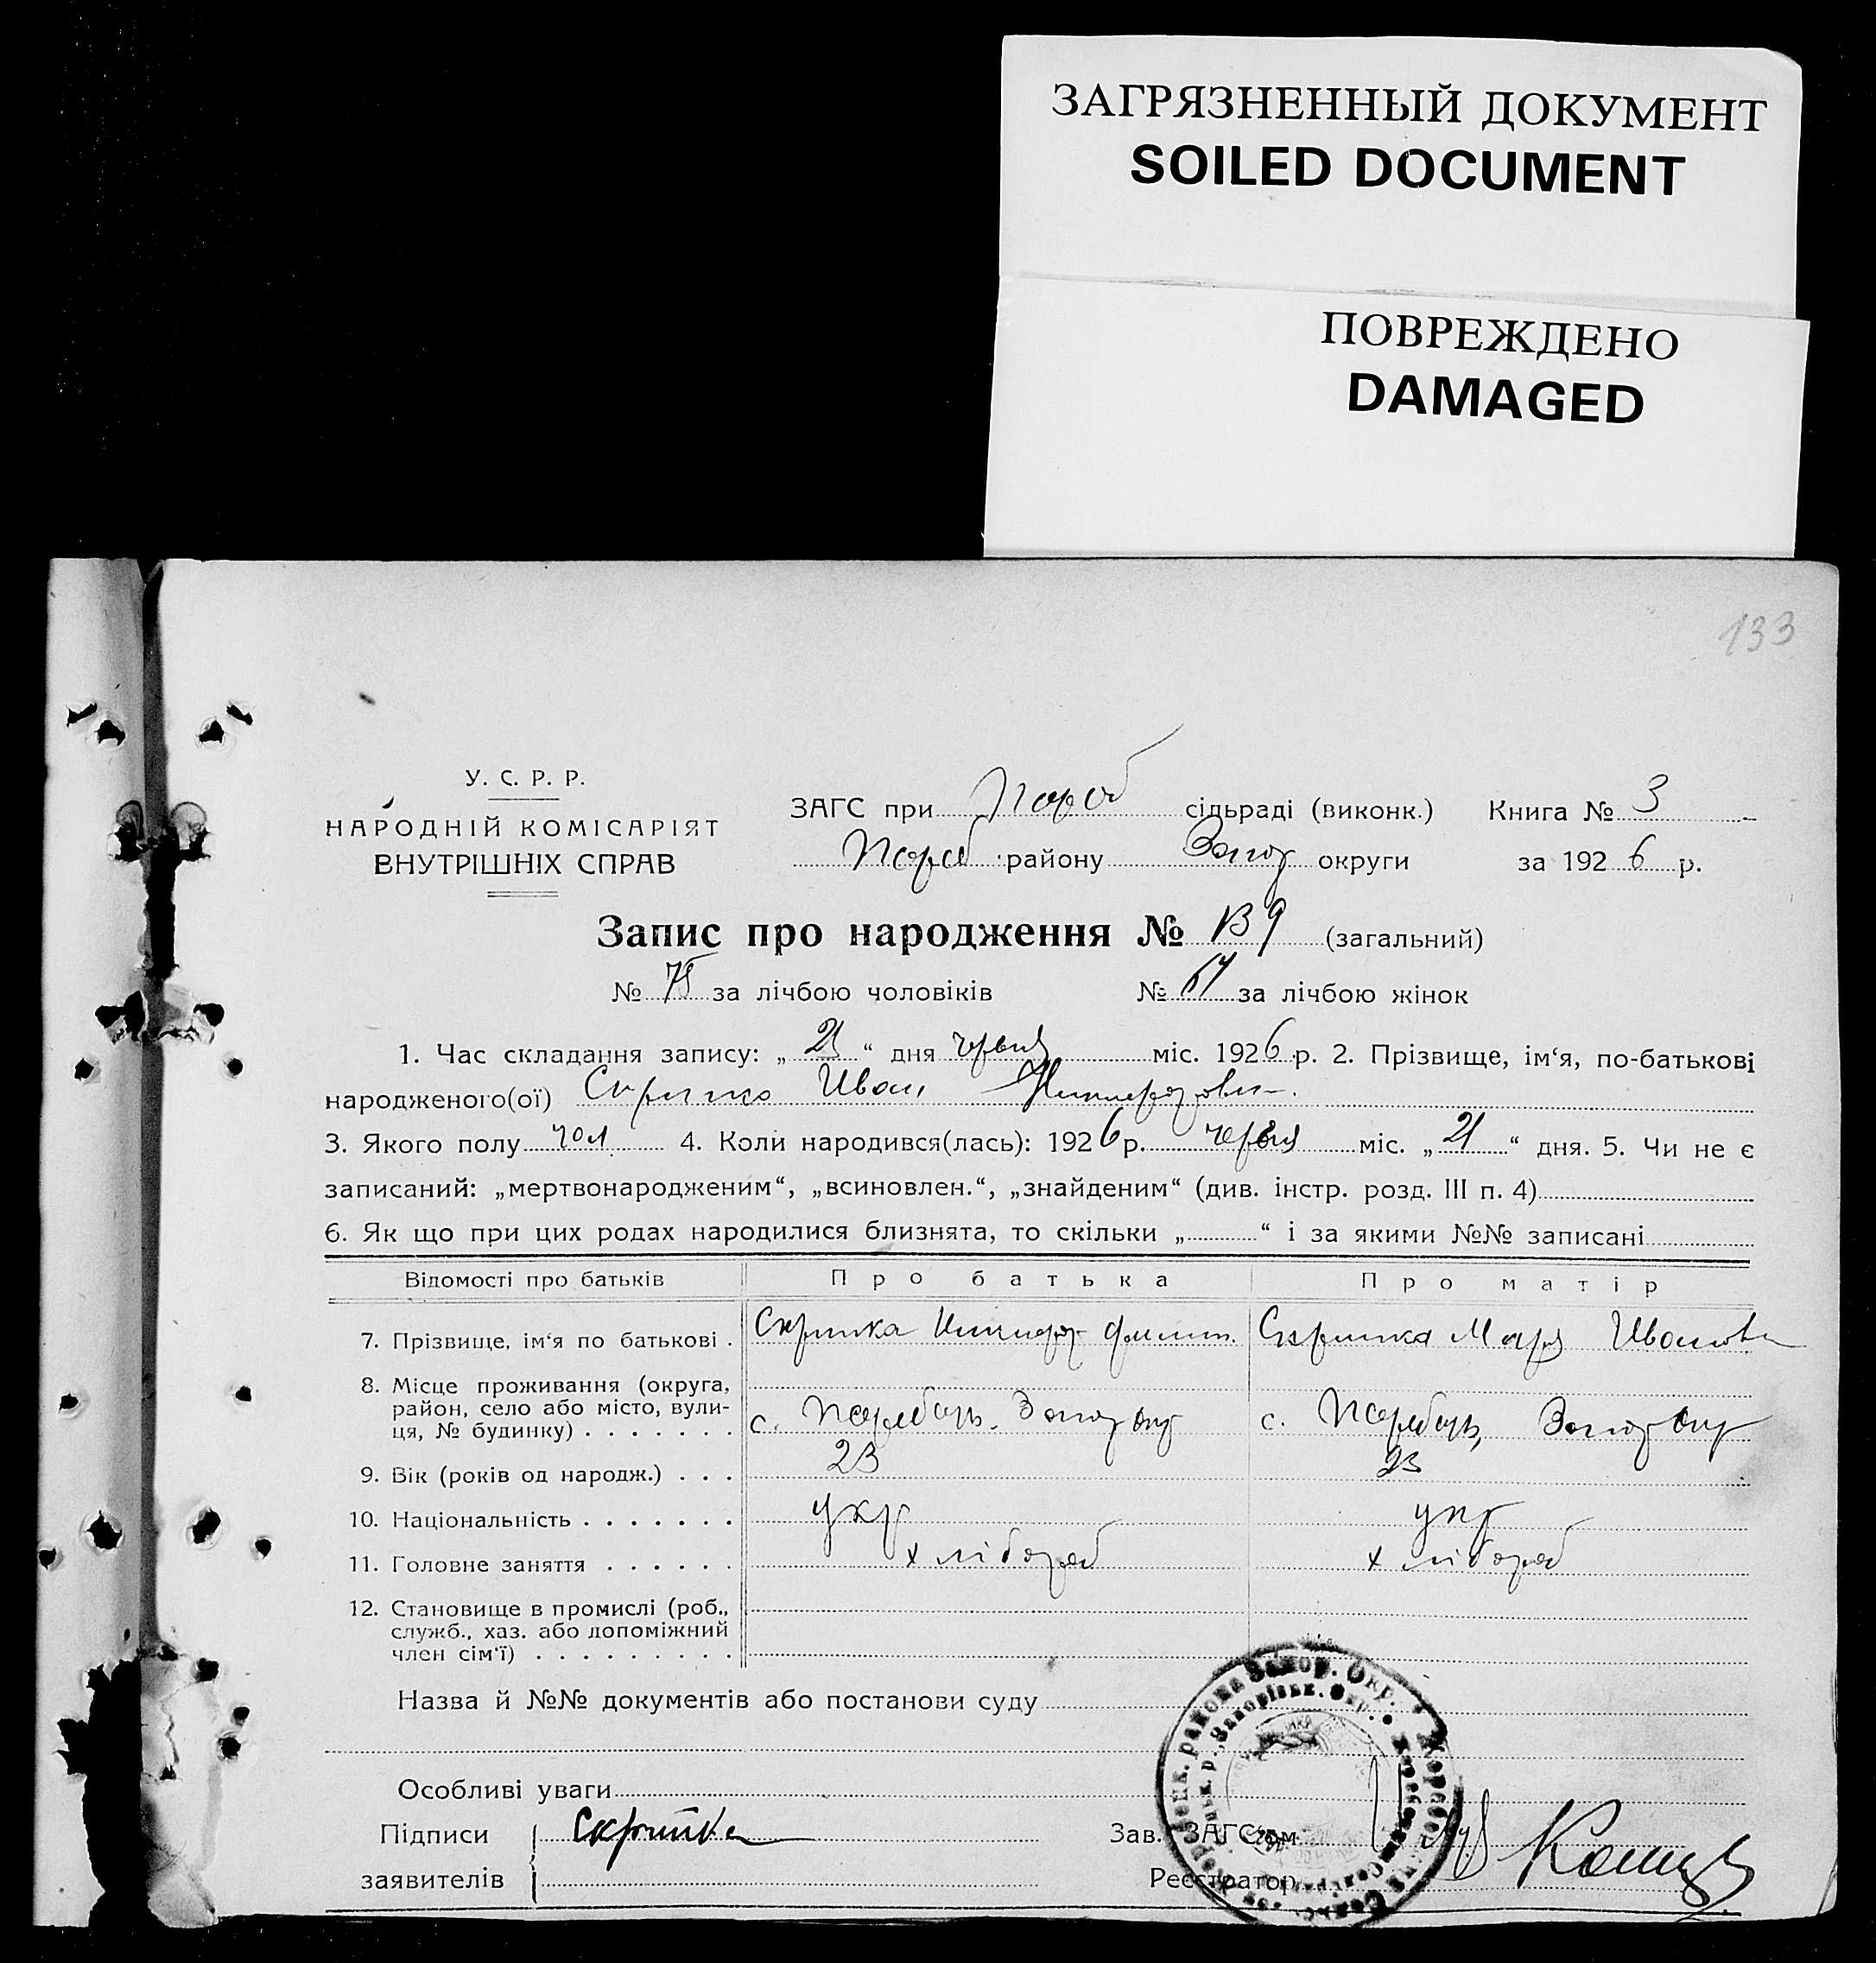 ЗАГРЯЗНЕННЫЙ ДОКУМЕНТ
SOILED DOCUMENT
ПОВРЕЖДЕНО
DAMAGED
133
У. С. Р. Р.
НАРОДНІЙ КОМІСАРІЯТ
ВНУТРІШНІХ СПРАВ
ЗАГС при сільраді (виконк.) Книга № 3
району Запор округи за 1926 р.
Запис про народження № 139 (загальний)
№ 75 за лічбою чоловіків № 64 за лічбою жінок
1. Час складання запису: „ “ дня червня міс. 1926 р. 2. Прізвище, ім‘я, по-батькові
народженого(ої) Скрипко Иван
3. Якого полу чол 4. Коли народився(лась): 1926 р. червня міс. „21“ дня. 5. Чи не є
записаний: „мертвонародженим“, „всиновлен.“, „знайденим“ (див. інстр. розд. III п. 4)
6. Як що при цих родах народилися близнята, то скільки „ “ і за якими №№ записані
Відомості про батьків Про батька Про матір
7. Прізвище, ім‘я по батькові . Скрипка Скрипка Мария Иванов
8. Місце проживання (округа,
район, село або місто, вули-
ця, № будинку) . . . . . . . с. Запор окр с. Запор окр
9. Вік (років од народж.) . . . 23 23
10. Національність . . . . . . . укр укр
11. Головне заняття . . . . . . хлібороб хлібороб
12. Становище в промислі (роб.,
служб., хаз. або допоміжний
член сім‘ї) . . . . . . . . .
Назва й №№ документів або постанови суду
Особливі уваги
Підписи Скрипка Зав. ЗАГС‘ом
заявителів Реєстратор